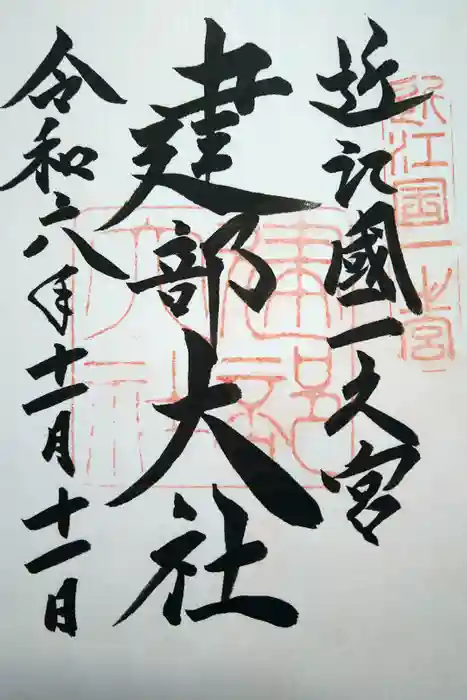 近江國一之宮
建部大社
令和六年十一月十一日
近江國一之宮
建部大社